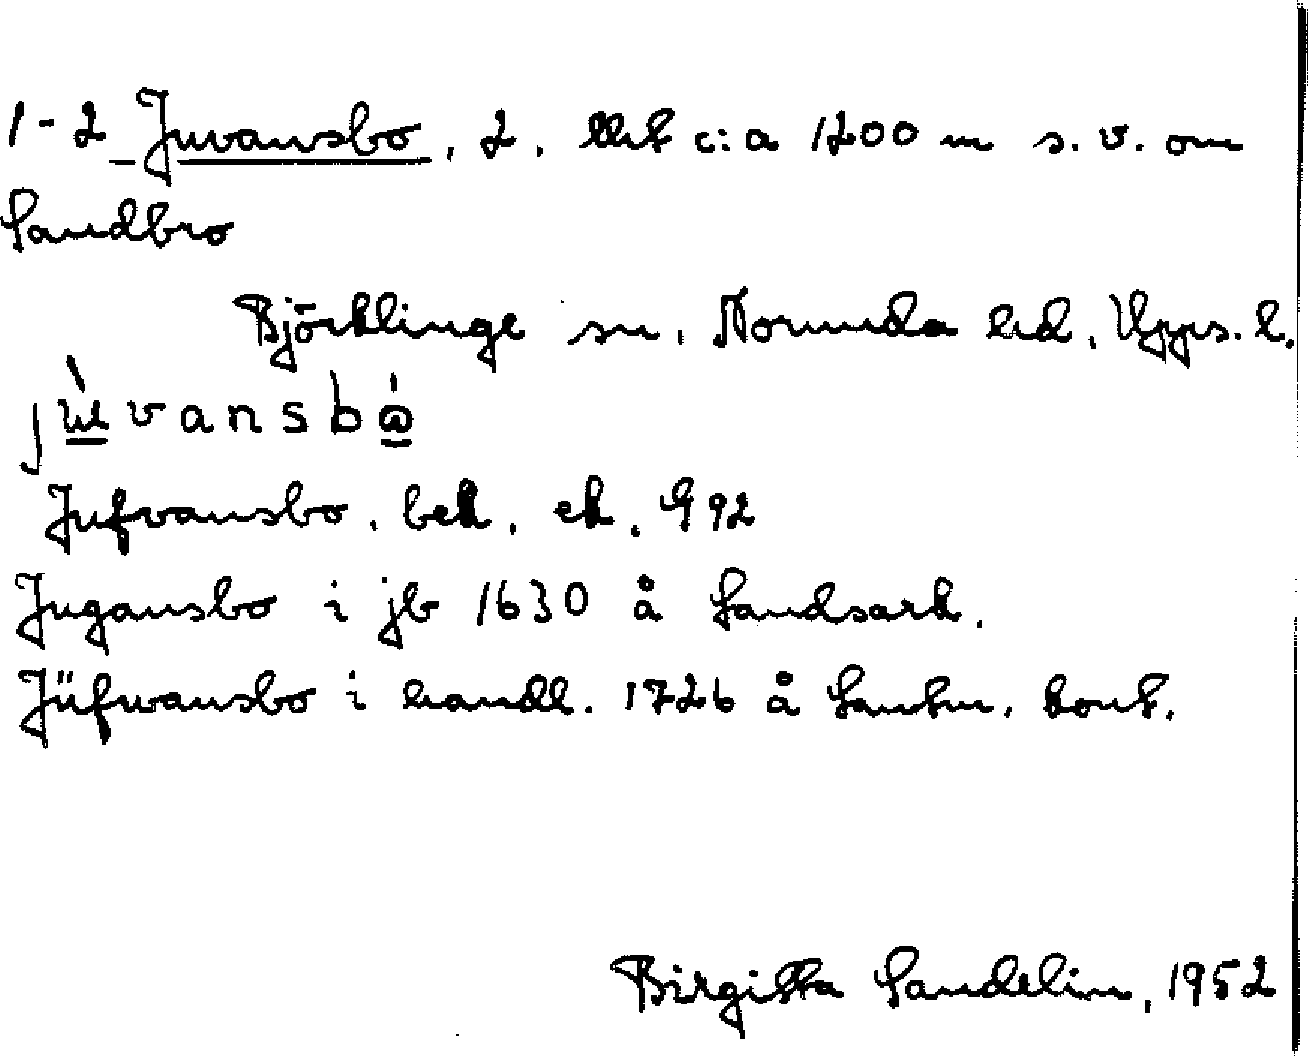 1-2 Juvansbo, 2, llht c:a 1200 m s. v. om
Sandbro
Björklinge sn, Norunda hd, Upps. l.
vansb
Jufvansbo, bek, ek, G 92
Jugansbo i jb 1630 å Landsark.
Jüfwansbo i handl. 1726 å Lantm. kont.
Birgitta Sandelin, 1952